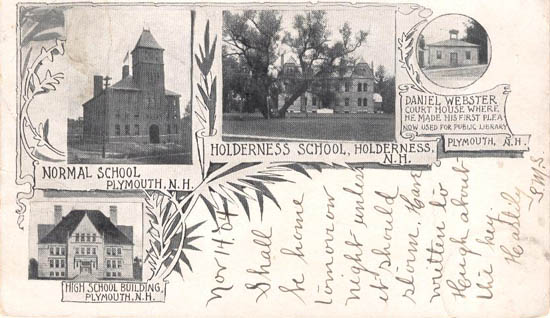 NORMAL SCHOOL
PLYMOUTH, N.H.
HOLDERNESS SCHOOL, HOLDERNESS,
N.H.
DANIEL WEBSTER
COURT HOUSE WHERE
HE MADE HIS FIRST PLEA
NOW USED FOR PUBLIC LIBRARY
PLYMOUTH, N.H.
HIGH SCHOOL BUILDING,
PLYMOUTH, N.H.
Nov 14.04
Shall
be home
tomorrow
night unless
it should
storm. Have
written to
Hough about
the key.
Hastily